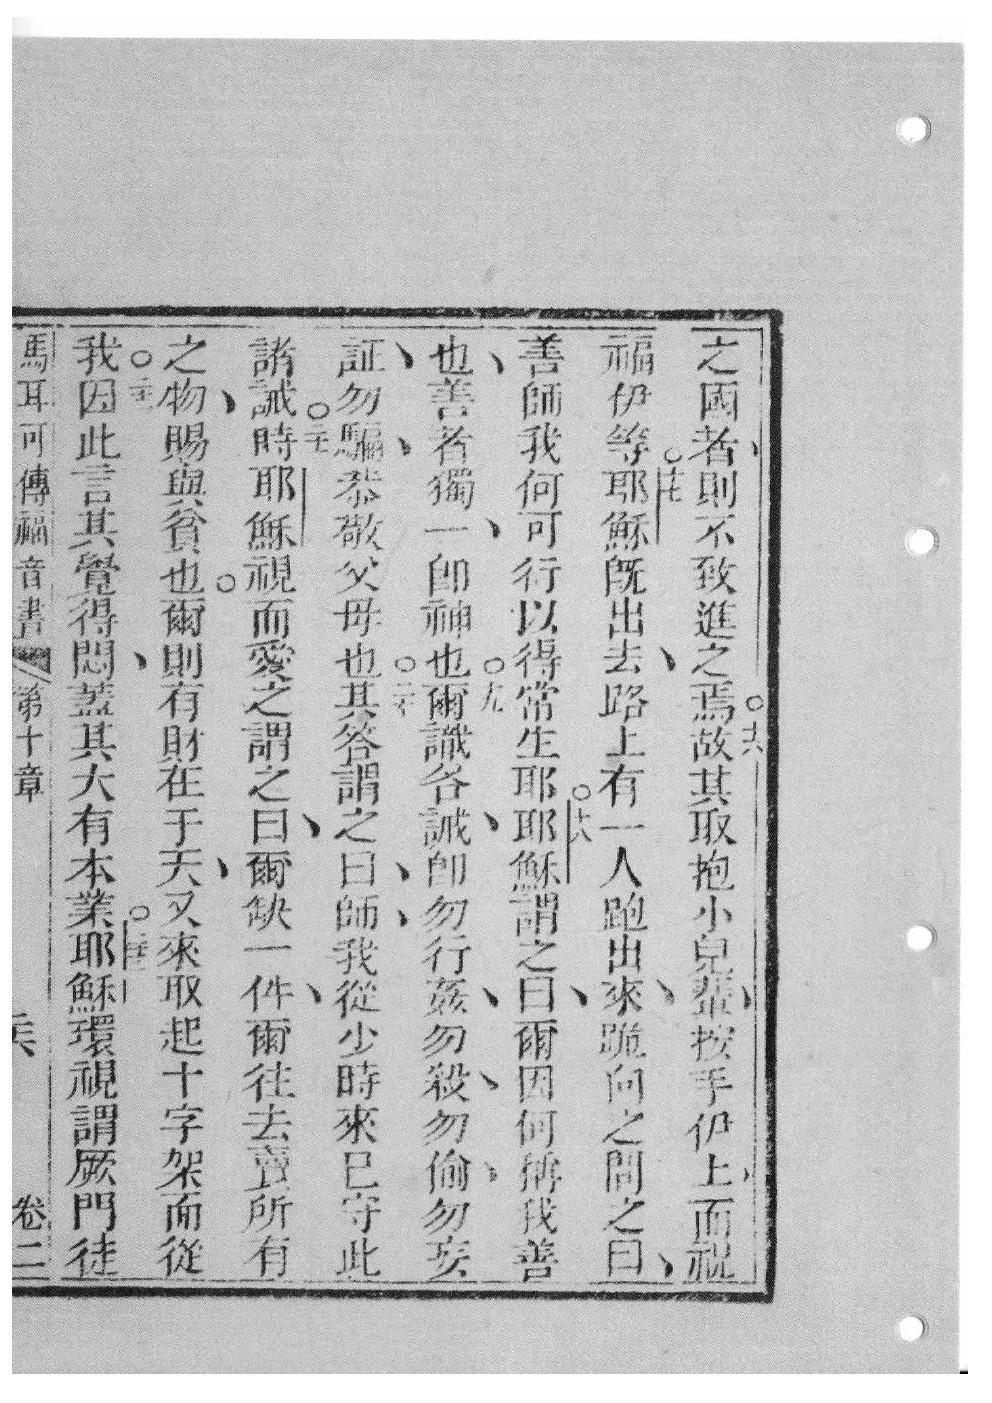 之國者則不致進之焉○十六故其取抱小兒輩按手伊上而祝
福伊等○十七耶穌既出去路上有一人跑出來跪向之問之曰
善師我何可行以得常生耶○十八耶穌謂之曰爾因何稱我善
也善者獨一即神也○十九爾識各誡即勿行姦勿殺勿偷勿妄
証勿騙恭敬父母也○二十其答謂之曰師我從少時來已守此
諸誡時○二十一耶穌視而愛之謂之曰爾缺一件爾往去賣所有
之物賜與貧也○爾則有財在于天又來取起十字架而從
我○二十二因此言其覺得悶蓋其大有本業○二十三耶穌環視謂厥門徒
馬耳可傳福音書 第十章 卷二